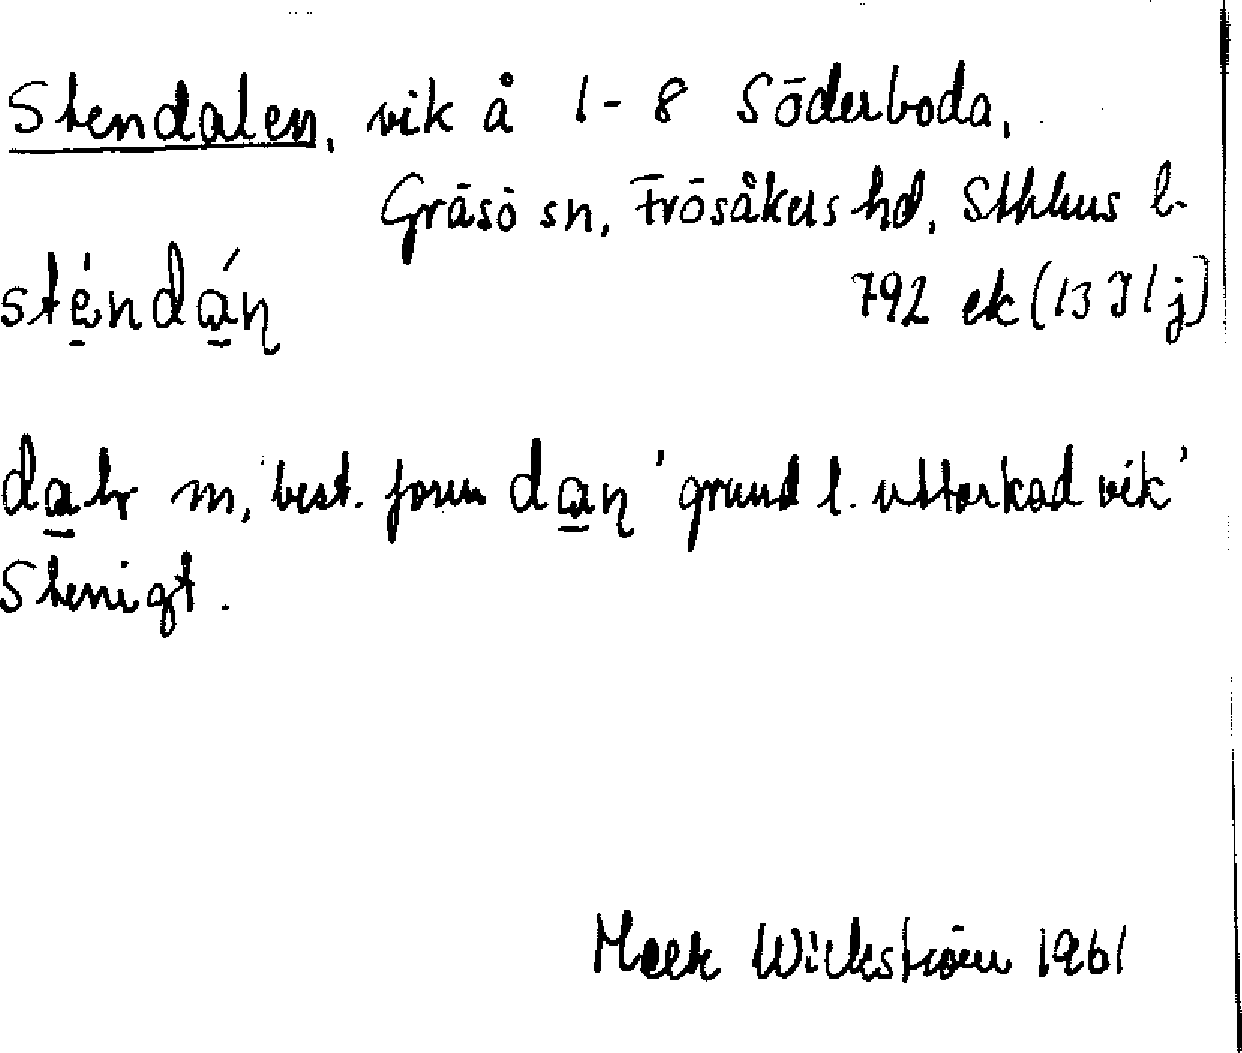 Stendalen, vik å 1-8 Söderboda,
Gräsö sn, Frösåkers hd, Sthlms l.
sténdán 792 ek (13 I 1 j)
dalr m, best. form dan 'grund l. uttorkad vik'
Stenigt.
Wickström 1961